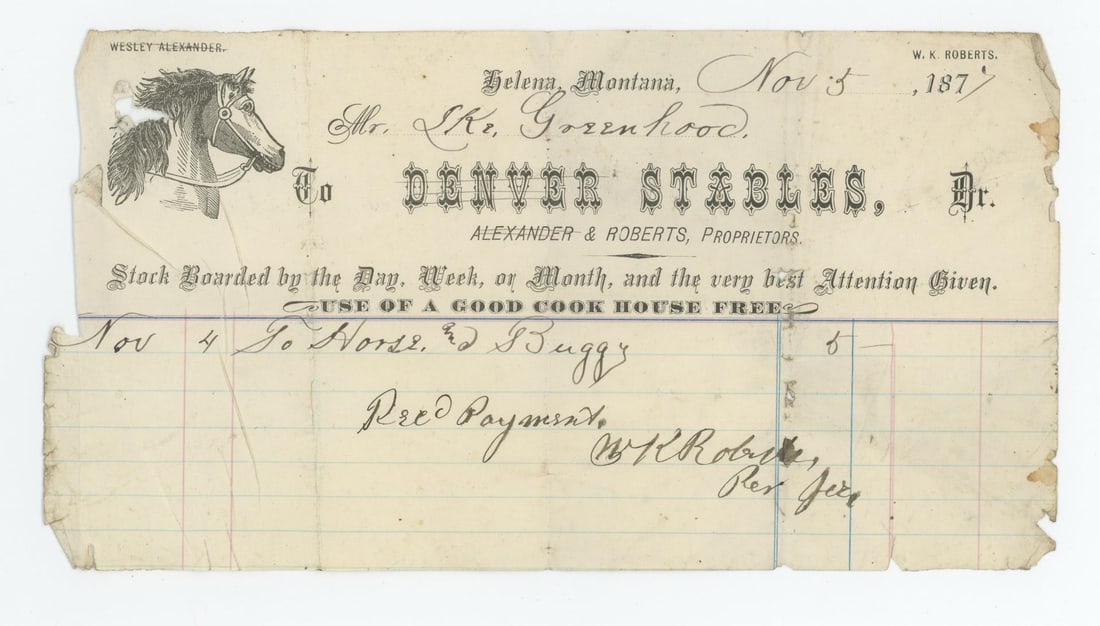 WESLEY ALEXANDER.
W. K. ROBERTS.
Helena, Montana, Nov 5, 1877
Mr. Ike. Greenhood.
To DENVER STABLES, Dr.
ALEXANDER & ROBERTS, PROPRIETORS.
Stock Boarded by the Day, Week, or Month, and the very best Attention Given.
USE OF A GOOD COOK HOUSE FREE
Nov 4 To Horse. and Buggy 5 —
Rec'd Payment.
W K Roberts,
Per